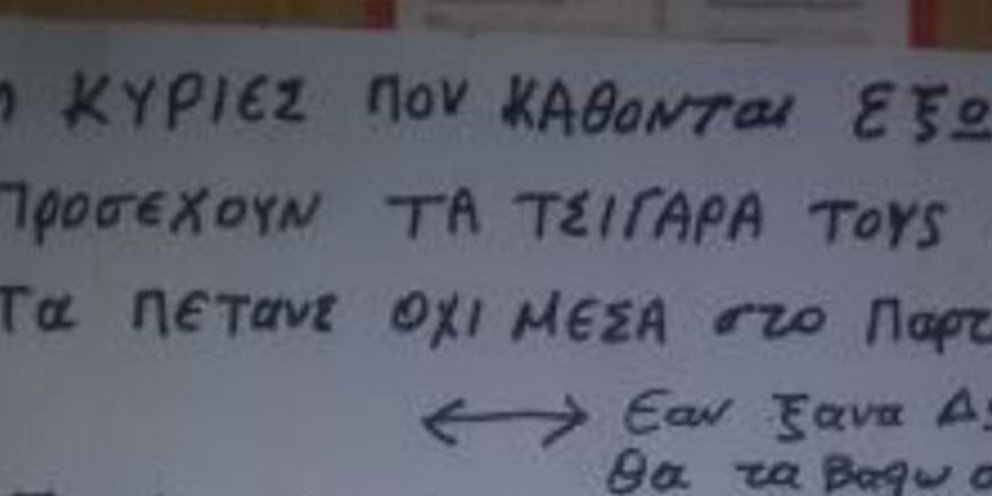 ΚΥΡΙΕΣ που ΚΑΘΟΝΤαι Εξω
ΠροσΕΧΟΥΝ ΤΑ ΤΣΙΓΑΡΑ ΤΟΥς
Τα ΠΕΤανε ΟΧΙ ΜΕΣΑ στο
Εαν ξανα
Θα τα Βαφω